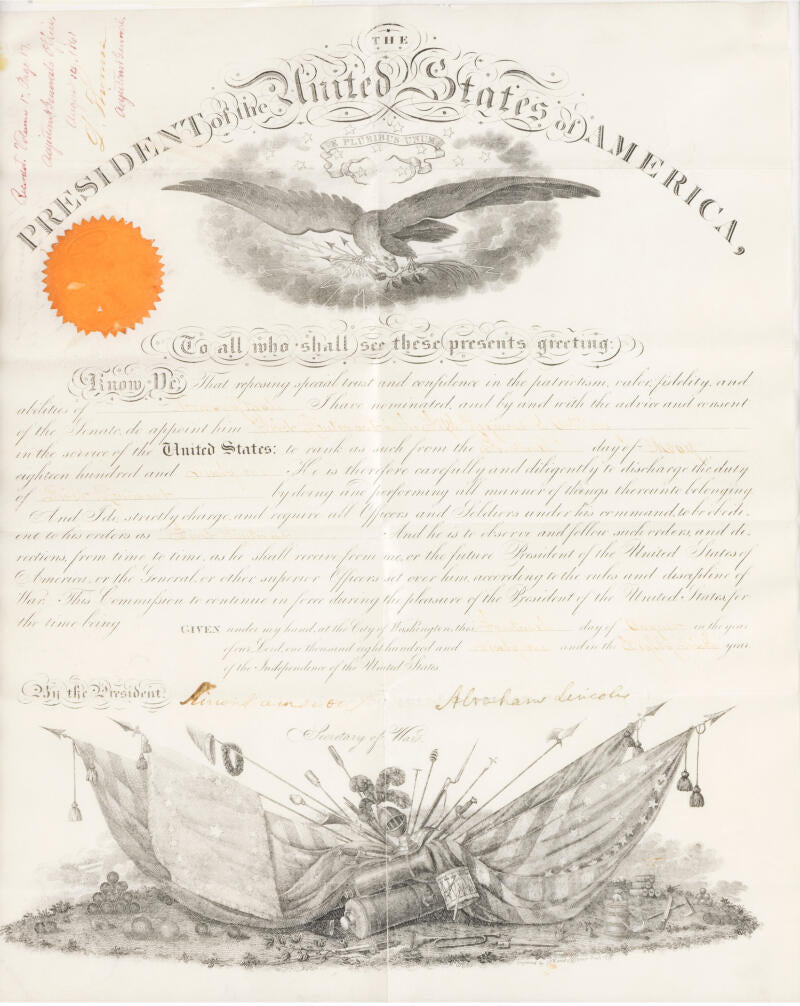 Adjutant General's Office,
August 1861
L. Thomas
Adjutant General.
THE
PRESIDENT of the United States of AMERICA,
E PLURIBUS UNUM
To all who shall see these presents greeting:
Know Ye, That reposing special trust and confidence in the patriotism, valor, fidelity, and
abilities of I have nominated, and by and with the advice and consent
of the Senate, do appoint him
in the service of the United States: to rank as such from the day of May
eighteen hundred and He is therefore carefully and diligently to discharge the duty
of by doing and performing all manner of things thereunto belonging.
And I do, strictly charge, and require all Officers and Soldiers under his command, to be obedi-
ent to his orders as And he is to observe and follow such orders, and di-
rections, from time to time, as he shall receive from me, or the future President of the United States of
America, or the General, or other superior Officers set over him, according to the rules and discipline of
War. This Commission to continue in force during the pleasure of the President of the United States, for
the time being
GIVEN under my hand, at the City of Washington, this day of August in the year
of our Lord, one thousand eight hundred and and in the year
of the Independence of the United States.
By the President: Simon Cameron Abraham Lincoln
Secretary of War.